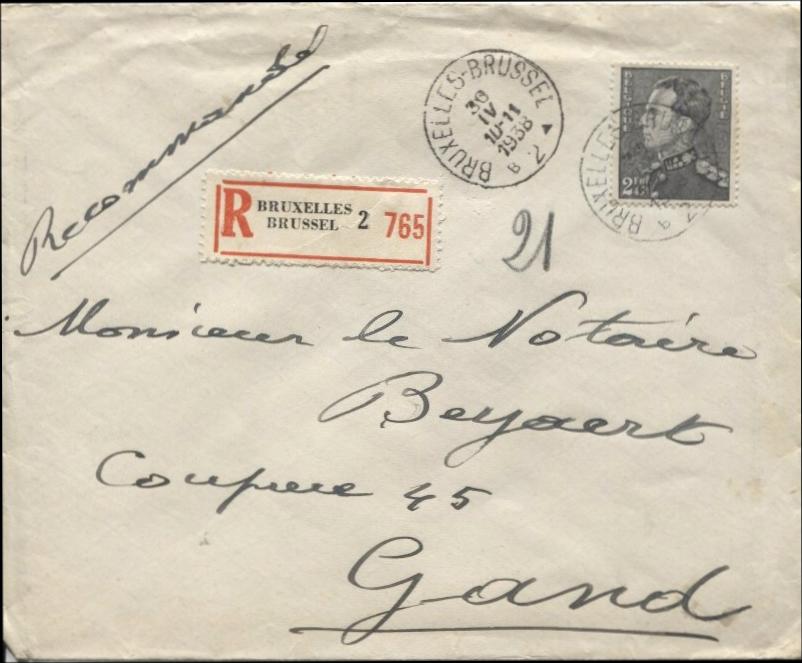 Recommandé
BRUXELLES-BRUSSEL
30
IV
10-11
1938
B 2
BELGIQUE BELGIE
R BRUXELLES 2 765
BRUSSEL
21
Monsieur le Notaire
Beyaert
Coupure 45
Gand